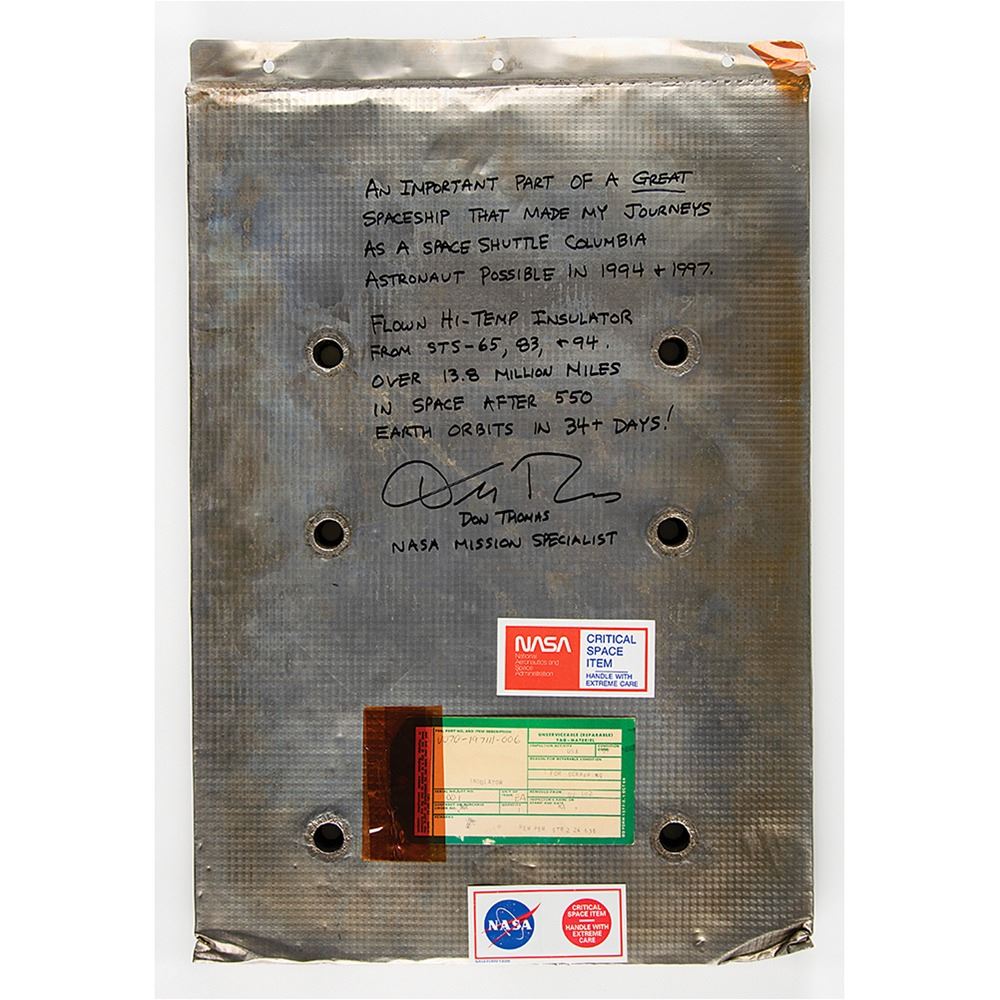 AN IMPORTANT PART OF A GREAT
SPACESHIP THAT MADE MY JOURNEYS
AS A SPACE SHUTTLE COLUMBIA
ASTRONAUT POSSIBLE IN 1994 + 1997.
FLOWN HI-TEMP INSULATOR
FROM STS-65, 83, +94.
OVER 13.8 MILLION MILES
IN SPACE AFTER 550
EARTH ORBITS IN 34+ DAYS!
DON THOMAS
NASA MISSION SPECIALIST
NASA
National
Aeronautics and
Space
Administration
CRITICAL
SPACE
ITEM
HANDLE WITH
EXTREME CARE
PART NO. AND ITEM DESCRIPTION
INSULATOR
UNSERVICEABLE (REPARABLE)
TAG-MATERIEL
INSPECTION ACTIVITY
CONDITION
CODE
REASON FOR REPARABLE CONDITION
REMOVED FROM
UNIT OF
EA
QUANTITY
REMARKS
NASA
CRITICAL
SPACE ITEM
HANDLE WITH
EXTREME
CARE